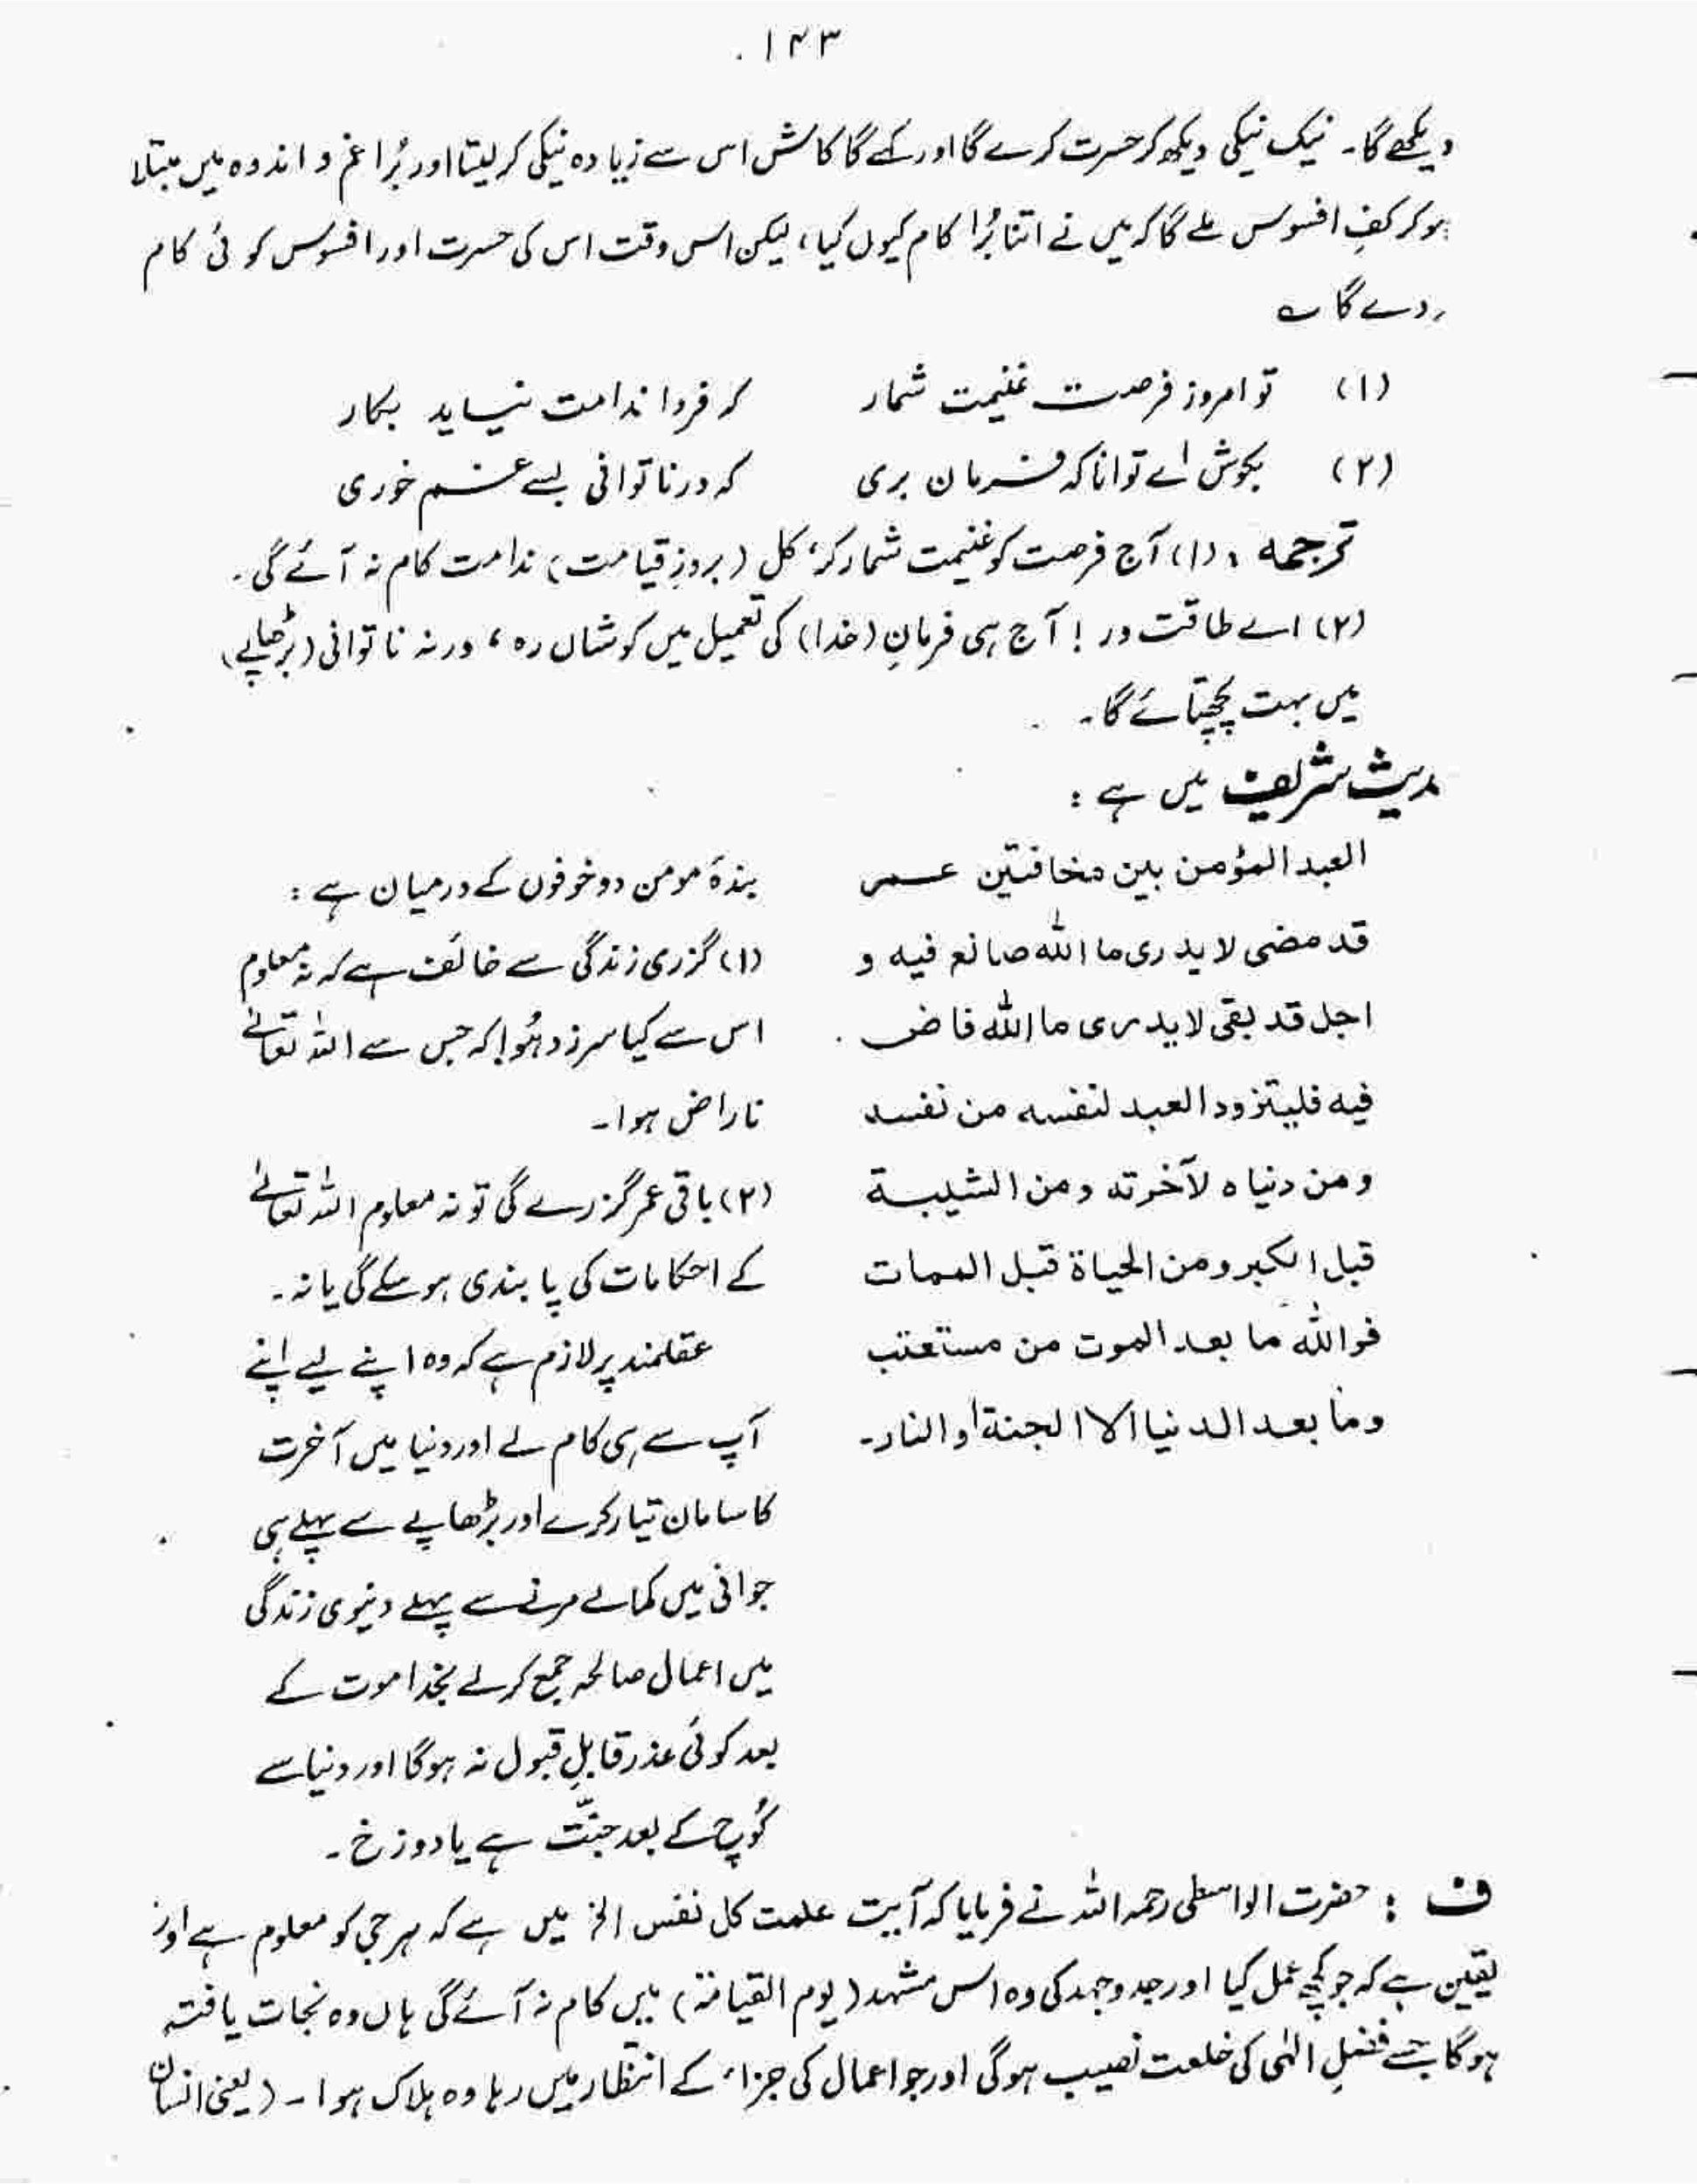 ۱۴۳
دیکھے گا۔ نیک نیکی دیکھ کر حسرت کرے گا اور کہے گا کاش اس سے زیادہ نیکی کر لیتا اور بُرا غم و اندوہ میں مبتلا
ہو کر کفِ افسوس ملے گا کہ میں نے اتنا بُرا کام کیوں کیا، لیکن اس وقت اس کی حسرت اور افسوس کوئی کام
دے گا ؎
(۱) تو امروز فرصت غنیمت شمار کہ فردا ندامت نیاید بکار
(۲) بکوش اے توانا کہ فرمان بری کہ در ناتوانی بسے غم خوری
ترجمہ : (۱) آج فرصت کو غنیمت شمار کر، کل (بروزِ قیامت) ندامت کام نہ آئے گی۔
(۲) اے طاقت ور ! آج ہی فرمانِ (خدا) کی تعمیل میں کوشاں رہ، ورنہ ناتوانی (بڑھاپے)
میں بہت پچھتائے گا۔
حدیث شریف میں ہے :
العبد المؤمن بین مخافتین عمر
قد مضی لا یدری ما اللہ صانع فیہ و
اجل قد بقی لا یدری ما اللہ قاض
فیہ فلیتزود العبد لنفسہ من نفسہ
ومن دنیاہ لآخرتہ ومن الشیبة
قبل الکبر ومن الحیاة قبل الممات
فواللہ ما بعد الموت من مستعتب
وما بعد الدنیا الا الجنة او النار۔
بندۂ مومن دو خوفوں کے درمیان ہے :
(۱) گزری زندگی سے خائف ہے کہ نہ معلوم
اس سے کیا سرزد ہُوا کہ جس سے اللہ تعالےٰ
ناراض ہوا۔
(۲) باقی عمر گزرے گی تو نہ معلوم اللہ تعالےٰ
کے احکامات کی پابندی ہو سکے گی یا نہ۔
عقلمند پر لازم ہے کہ وہ اپنے لیے اپنے
آپ سے ہی کام لے اور دنیا میں آخرت
کا سامان تیار کرے اور بڑھاپے سے پہلے ہی
جوانی میں کمالے مرنے سے پہلے دنیوی زندگی
میں اعمال صالحہ جمع کر لے بخدا موت کے
بعد کوئی عذر قابلِ قبول نہ ہوگا اور دنیا سے
کُوچ کے بعد جنّت ہے یا دوزخ۔
ف : حضرت الواسطی رحمہ اللہ نے فرمایا کہ آیت علمت کل نفس الخ میں ہے کہ ہر جی کو معلوم ہے اور
یقین ہے کہ جو کچھ عمل کیا اور جدوجہد کی وہ اس مشہد (یوم القیامة) میں کام نہ آئے گی ہاں وہ نجات یافتہ
ہوگا جسے فضلِ الٰہی کی خلعت نصیب ہوگی اور جو اعمال کی جزاء کے انتظار میں رہا وہ ہلاک ہوا۔ (یعنی انسان